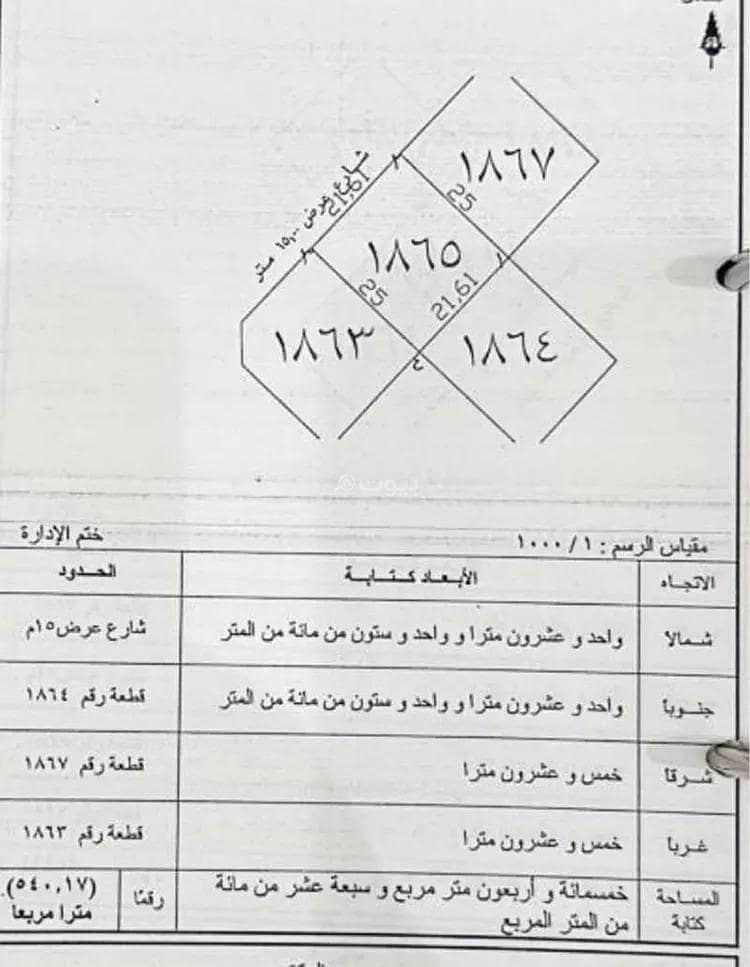 ١٨٦٧
شارع بعرض ١٥,٠٠ متر
21,61
25
١٨٦٥
25
21,61
١٨٦٣
١٨٦٤
٤
بيوت
مقياس الرسم : ١ / ١٠٠٠ ختم الإدارة
الاتجاه الأبعاد كتابة الحدود
شمالا واحد و عشرون مترا و واحد و ستون من مائة من المتر شارع عرض ١٥م
جنوبا واحد و عشرون مترا و واحد و ستون من مائة من المتر قطعة رقم ١٨٦٤
شرقا خمس و عشرون مترا قطعة رقم ١٨٦٧
غربا خمس و عشرون مترا قطعة رقم ١٨٦٣
المساحة كتابة خمسمائة و أربعون متر مربع و سبعة عشر من مائة من المتر المربع رقمًا (٥٤٠,١٧) مترا مربعا